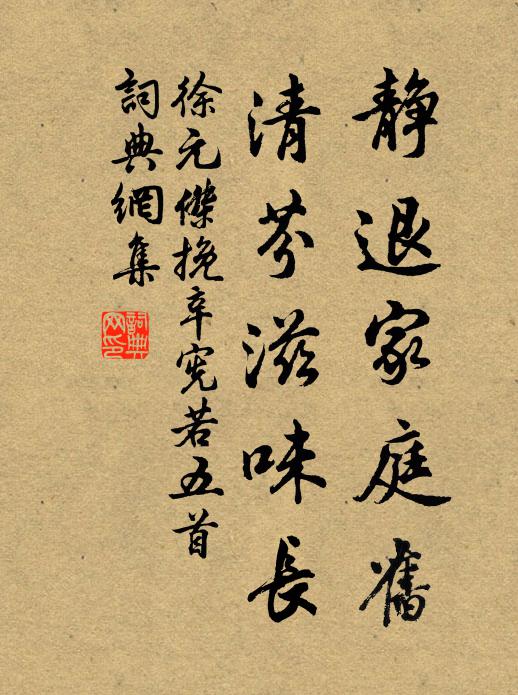 静退家庭舊
清芬滋味長
徐元傑挽辛宪若五首
詞典網集
詞典
网印